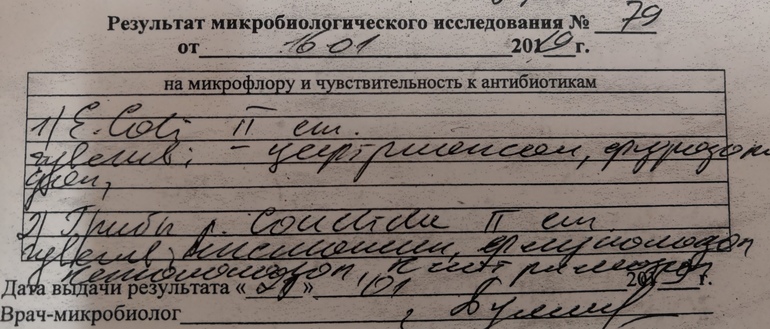 Результат микробиологического исследования № 79
от 16 01 2019 г.
на микрофлору и чувствительность к антибиотикам
1) E. Coli II ст.
чувствит: - цефтриаксон, фуразоли
дон,
2) Грибы р. Candida II ст.
чувствит нистатин, флуконазол
кетоконазол, клотримазол
Дата выдачи результата « 21 » 01 2019 г.
Врач-микробиолог